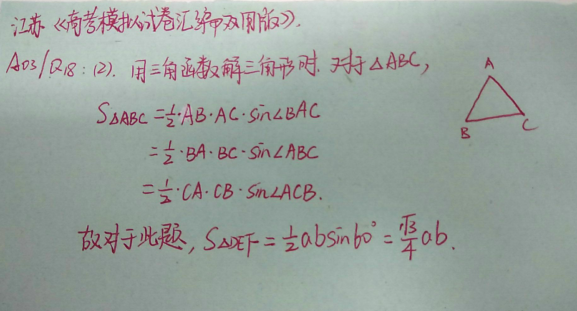 江苏《高考模拟试卷汇编甲双用版》.
A03/Q18:(2). 用三角函数解三角形时. 对于△ABC,
S△ABC = 1/2·AB·AC·sin∠BAC
= 1/2·BA·BC·sin∠ABC
= 1/2·CA·CB·sin∠ACB.
故对于此题, S△DEF = 1/2 ab sin60° = √3/4 ab.
A
B
C